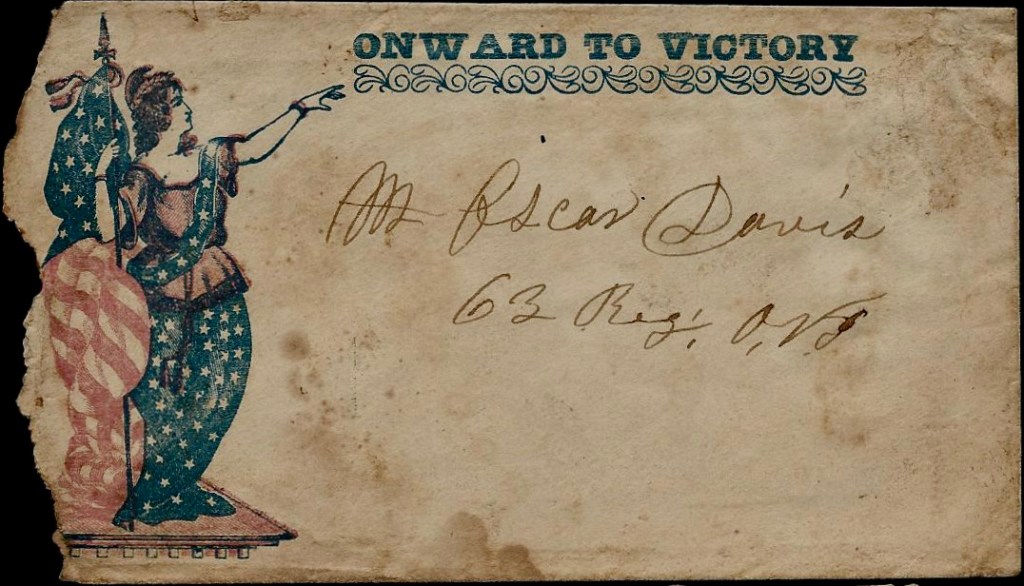 ONWARD TO VICTORY
Mr Oscar Davis
63 Reg. O, V I